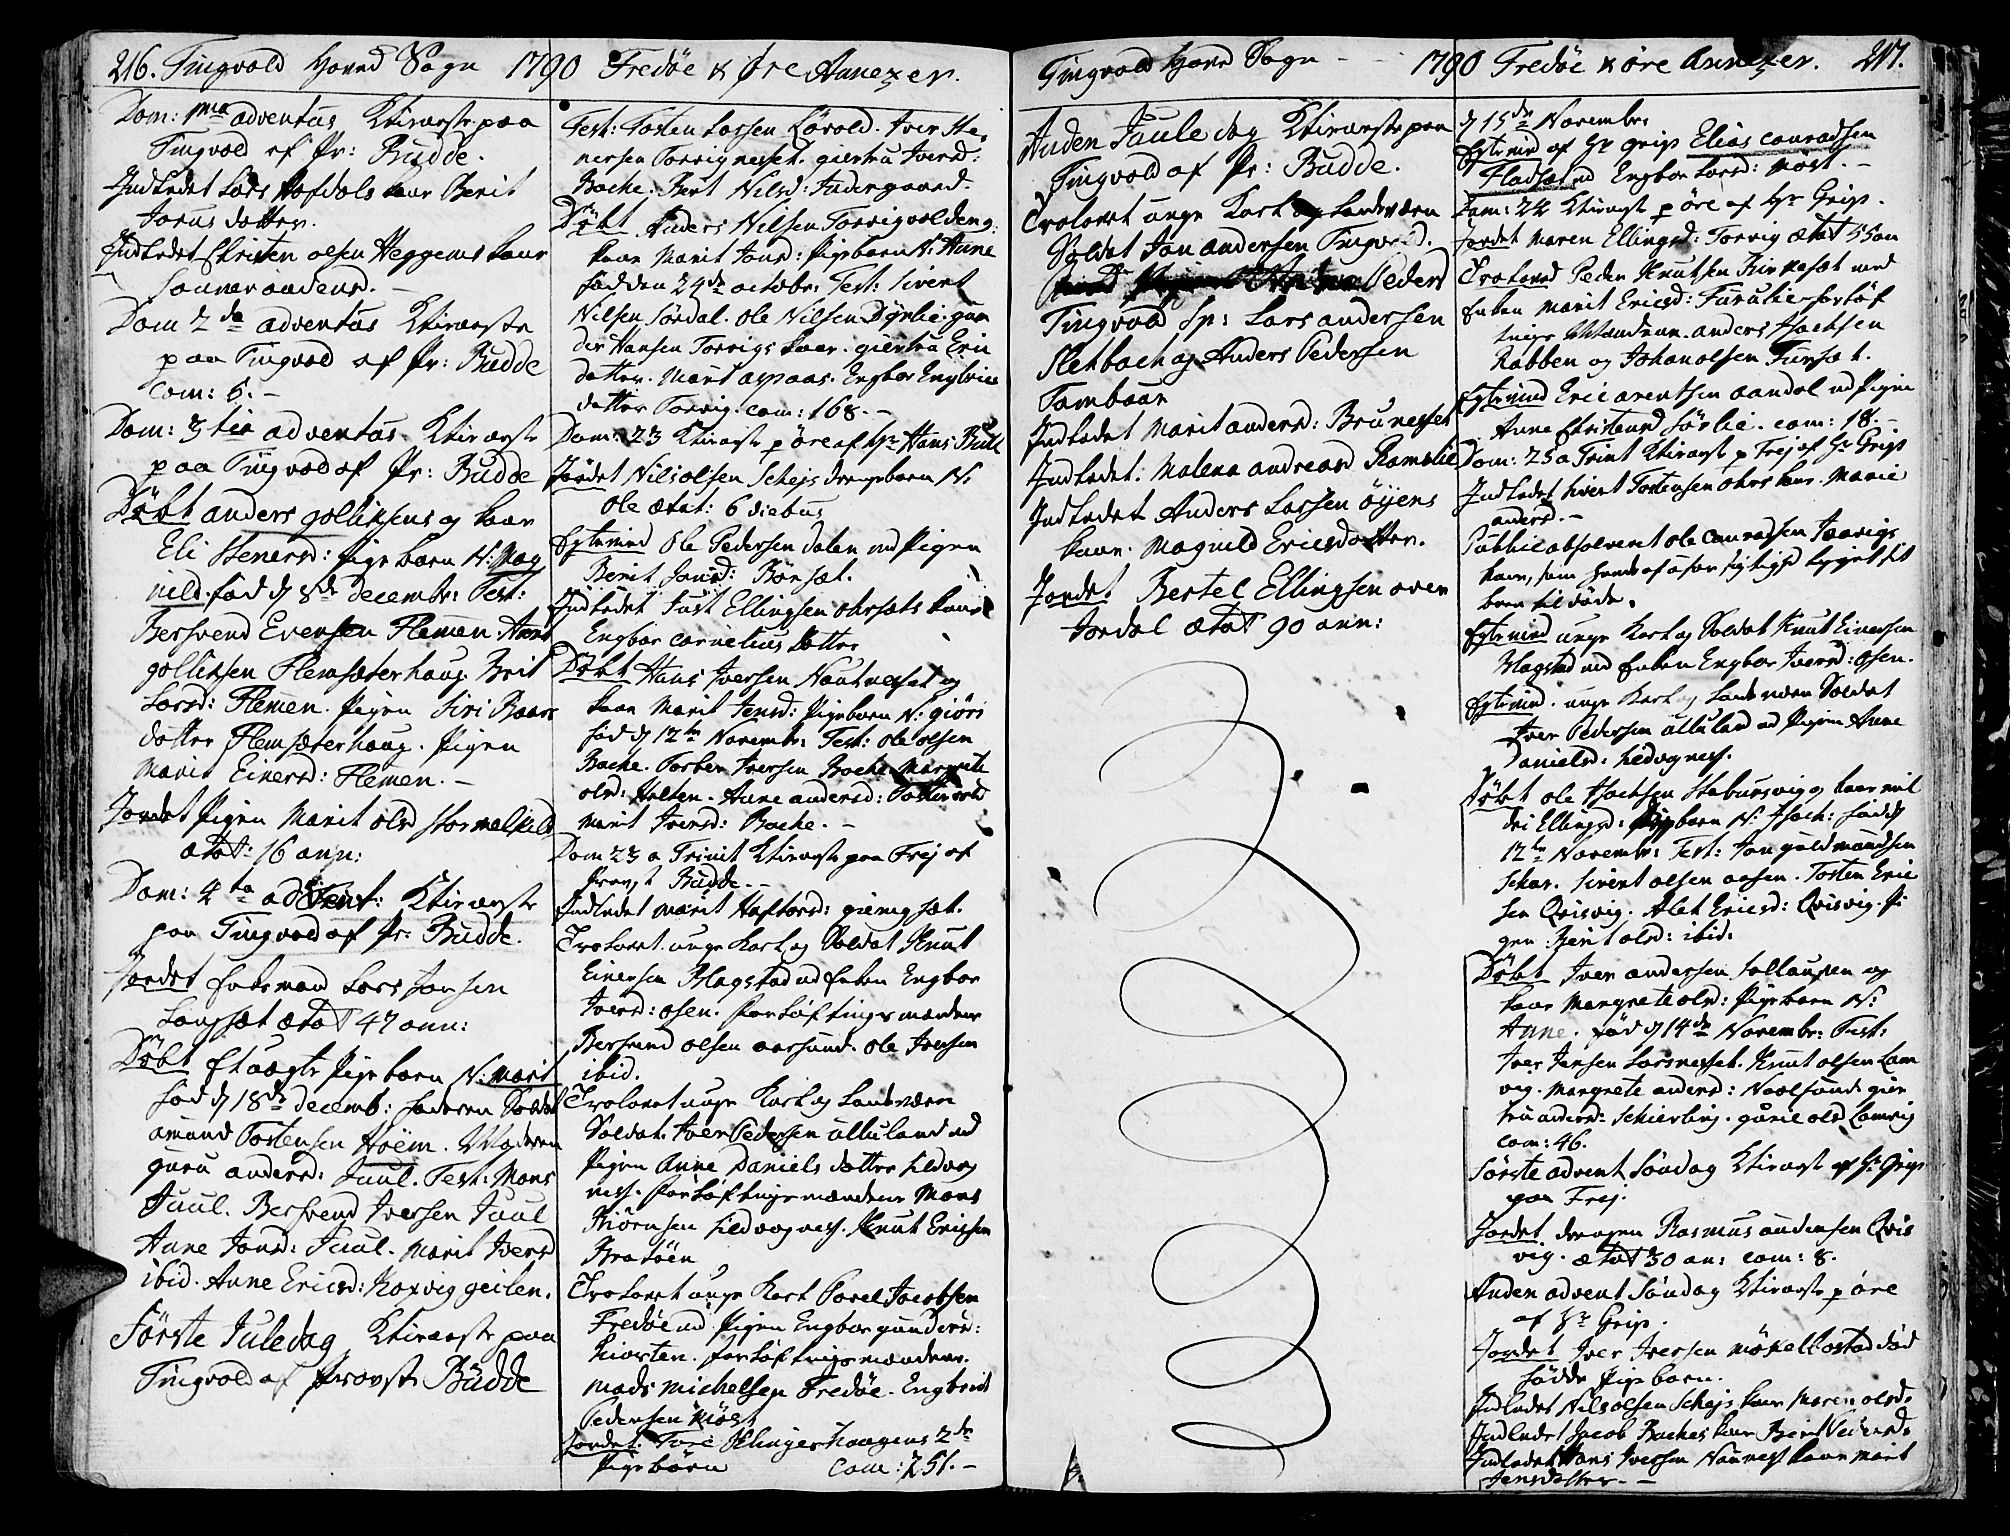 216. Tingvold Hoved Sogn 1790 Fredöe & Öre Annexer.
Dom: 1ma adventus Ktieneste paa
Tingvold af Pr: Budde.
Indledet Lars Hofdals kone Berit
Jonus datter.
Indledet Christen olsen Heggems kone
Dom 2da adventus Ktieneste
paa Tingvold af Pr: Budde
com: 6. -
Dom: 3tia adventus Ktieneste
paa Tingvold af Pr: Budde
Döbt anders golliksens og kone
Eli Stenersd: Pige barn N: Mag
nild. fød d 8de decembr: Test:
Bersvend Evensen Flemen. Arent
golliksen Flemsæterhaug. Brit
Larsd: Flemen. Pigen Siri Roars
datter Flemsæterhaug. Pigen
Marit Einersd: Flemen. -
Jordet Pigen Marit olsd
ætat: 16 ann:
Dom: 4ta advent: Ktieneste
paa Tingvold af Pr: Budde.
Jordet Enkemand Lars Jonsen
Langsæt ætat 47 ann:
Döbt Et uægte Pige barn N: Marit
fød d 18de decemb: faderen Soldat
amund Tostensen Höem. Moderen
guru andersd: Juul. Test: Mons
Juul. Bersvend Iversen Juul
Anne Jonsd: Juul. Marit Iversd
ibid. Anne Ericsd: Koxvig geilen.
Förste Juledag Ktieneste paa
Tingvold af Provst Budde
Test: Tosten Larsen Lövold. Iver Ste
nersen Torvignesset. giertru Iversd:
Bache. Berit Nilsd: Indergaard.
Döbt Anders Nilsen Torvigvolden og
kone Marit Jonsd: Pigebarn N: Anne
fød den 24de octobr: Test: Sivert
Nilsen Sördal. Ole Nilsen Dyrlie. gun
der Hansen Torvigs kone. giertru Eric
datter. Marit aspaas. Engbor Engbrics
datter Torvig. com: 168. -
Dom: 23 Ktieneste p öre af Hr Hans
Jordet Nils olsen Schejs drengebarn N:
Ole ætat: 6 diebus
Egteviid Ole Pedersen dalen med Pigen
Berit Jonsd: Rönset.
Indledet Just Ellingsen ohrsæts kone
Engbor Cornelius datter
Döbt Hans Iversen Nautnesset og
kone Marit Jensd: Pigebarn N: giöri
fød d 12te Novembr: Test: ole olsen
Bache. Torber Iversen Bache. Margrete
olsd: Holten. Anne andersd:
Marit Iversd: Bache. -
Dom 23 a Trinit Ktieneste paa Frej af
Provst Budde. -
Indledet Marit Haftorsd:
Trolovet unge Karl og Soldat Knut
Einersen Magstad med Enken Engbor
Iversd: osen. forlöftnings mændene
Bersvend olsen aarsund. ole Iversen
ibid.
Trolovet unge Karl og Landværn
Soldat. Iver Pedersen ulluland med
Pigen Anne Daniels datter Ledvog
ness. forlöftnings mændene Mons
Kiörnsen Ledvogness. Knut Ericsen
Bratöen
Trolovet unge Karl Povel Jacobsen
Fredöe med Pigen Engbor gundersd:
Kiorsten. forlöftnings mændene.
Mads Michelsen Fredöe. Engbrict
Pedersen Möst
Jordet. Tore Klingerhaugens 2de
Pigebörn com: 251. -
Tingvold Hoved Sogn - - 1790 Fredöe & öre Annexer. 217.
Anden Juule dag Ktieneste paa
Tingvold af Pr: Budde.
Trolovet unge Karl og Landværn
Soldat Jon andersen Tingvold.
Pedersd
Tingvold Sp: Lars andersen
Sletbach og Anders Pedersen
Tombaar
Indledet Marit andersd: Brunesset
Indledet: Malena andreasd Romslie
Indledet Anders Larsen Öyens
kone. Magnild Ericsdatter.
Jordet Bertel Ellingsen over
Jordal ætat 90 ann:
d 15de Novembr:
Egtevied af Hr Grip Elias Conradsen
Fladset med Engbor Larsd: Möst. -
Dom: 24 Ktieneste p öre af Hr Grip.
Jordet Maren Ellingsd: Torvig ætat 55 an
Troloved Peder Knutsen Kirkesæt med
Enken Marit Ericsd: Furulie forlöft
nings Mændene. anders Isachsen
Rabben og Johan olsen Furset.
Egteviid Eric arentsen aandal med Pigen
Anne Christensd Sörlie. com: 18. -
Dom: 25 a Trinit Ktieneste p Frej af Hr Grip
Indledet Sivert Tostensen ohrs kone. Marie
andersd. -
Public absolveret ole Conradsen Torvigs
kone, som hende af uforsigtighed ligget sit
barn til döde.
Egteviid unge Karl og Soldat Knut Einersen
Magstad med Enken Engbor Iversd: osen.
Egteviid. unge Karl og Landværn Soldat
Iver Pedersen ulluland med Pigen Anne
Danielsd: Ledvogness.
Döbt ole Isachsen Stabursvig og kone
dri Ellingsd: barn N: Isach: fød d
12te Novembr: Test: Jon guldmundsen
Schar. Sivert olsen aasen. Tosten Eric
sen Qvisvig. Alet Ericsd: Qvisvig. Pi
gen Berit olsd: ibid:
Döbt Iver andersen og
kone Margrete olsd: Pigebarn N:
Anne. fød d 14de Novembr: Test:
Iver Jensen Larsnesset. Knut olsen Lam
vig. Margrete andersd: Naalsund. gier
tru andersd: Schierling. gurie olsd Lamvig
com: 46.
Förste advent Söndag Ktieneste af Hr Grip
paa Frej.
Jordet drengen Rasmus andersen Qvis
vig. ætat 30 an: com: 8.
Anden advent Söndag Ktieneste p öre
af Hr Grip.
Jordet Iver Iversen Mökelbostad död
födde Pige barn.
Indledet Nils olsen Schejs kone Maren olsd:
Indledet Jacob Baches kone Berit
Indledet Hans Iversen Nautnest kone Marit
Jensdatter. -